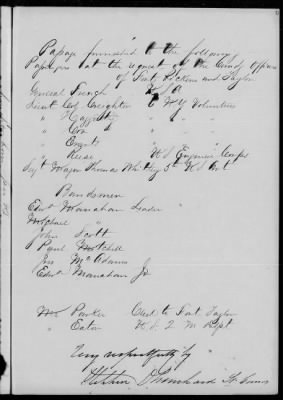 Passage furnished to the following
Passengers at the request of the Comdg Officers
of Forts Pickens and Taylor
General French U S A
Lieut Col Creighton 6 N Y Volunteers
" Hefferty
" Cox
" Evarts
" Reese U S Engineer Corps
Sergt Major Thomas Whitley 5th U S Art
Bandsmen
Edwd Monahan Leader
Michael "
John Scott
Paul Mitchell
Jno McAdams
Edwd Monahan Jr
Mr Parker Clerk to Fort Taylor
" Eaton U. S. Q M Dept
Very respectfully by